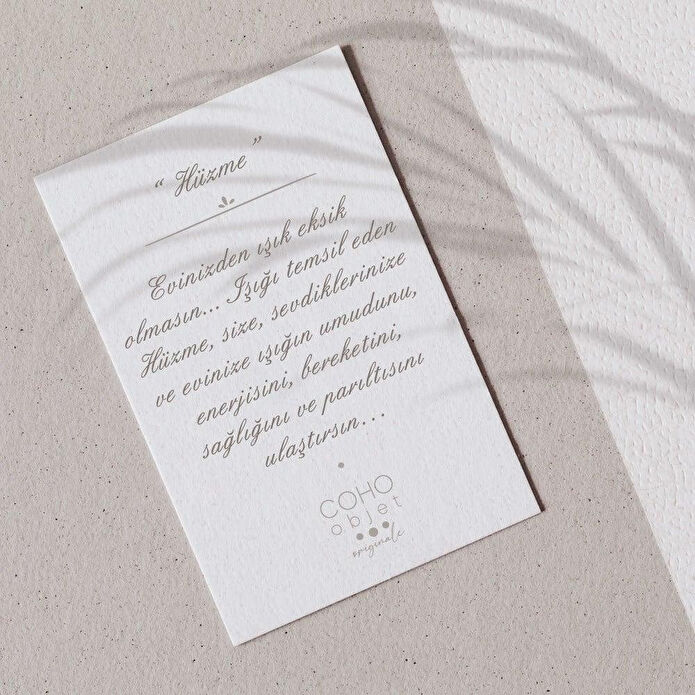 “ Hüzme ”
Evinizden ışık eksik
olmasın... Işığı temsil eden
Hüzme, size, sevdiklerinize
ve evinize ışığın umudunu,
enerjisini, bereketini,
sağlığını ve parıltısını
ulaştırsın...
COHO
objet
originale